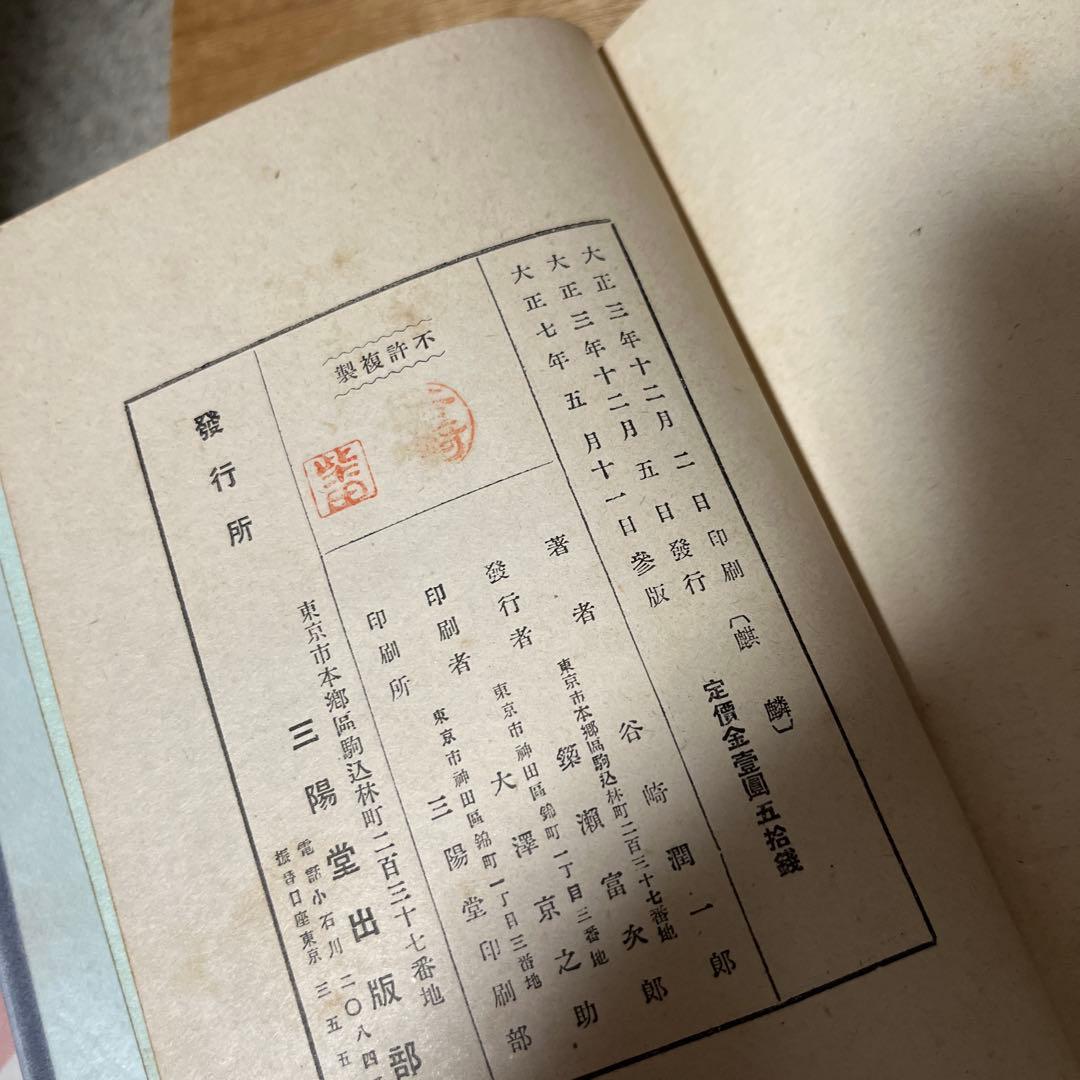 大正三年十二月二日印刷
大正三年十二月五日發行
大正七年五月十一日參版
〔麒麟〕
定價金壹圓五拾錢
不許複製
著者 谷崎潤一郎
東京市本鄕區駒込林町二百三十七番地
發行者 築瀨富次郎
東京市神田區錦町一丁目三番地
印刷者 大澤京之助
東京市神田區錦町一丁目三番地
印刷所 三陽堂印刷部
發行所
東京市本鄕區駒込林町二百三十七番地
三陽堂出版部
電話小石川二〇八四
振替口座東京三五五